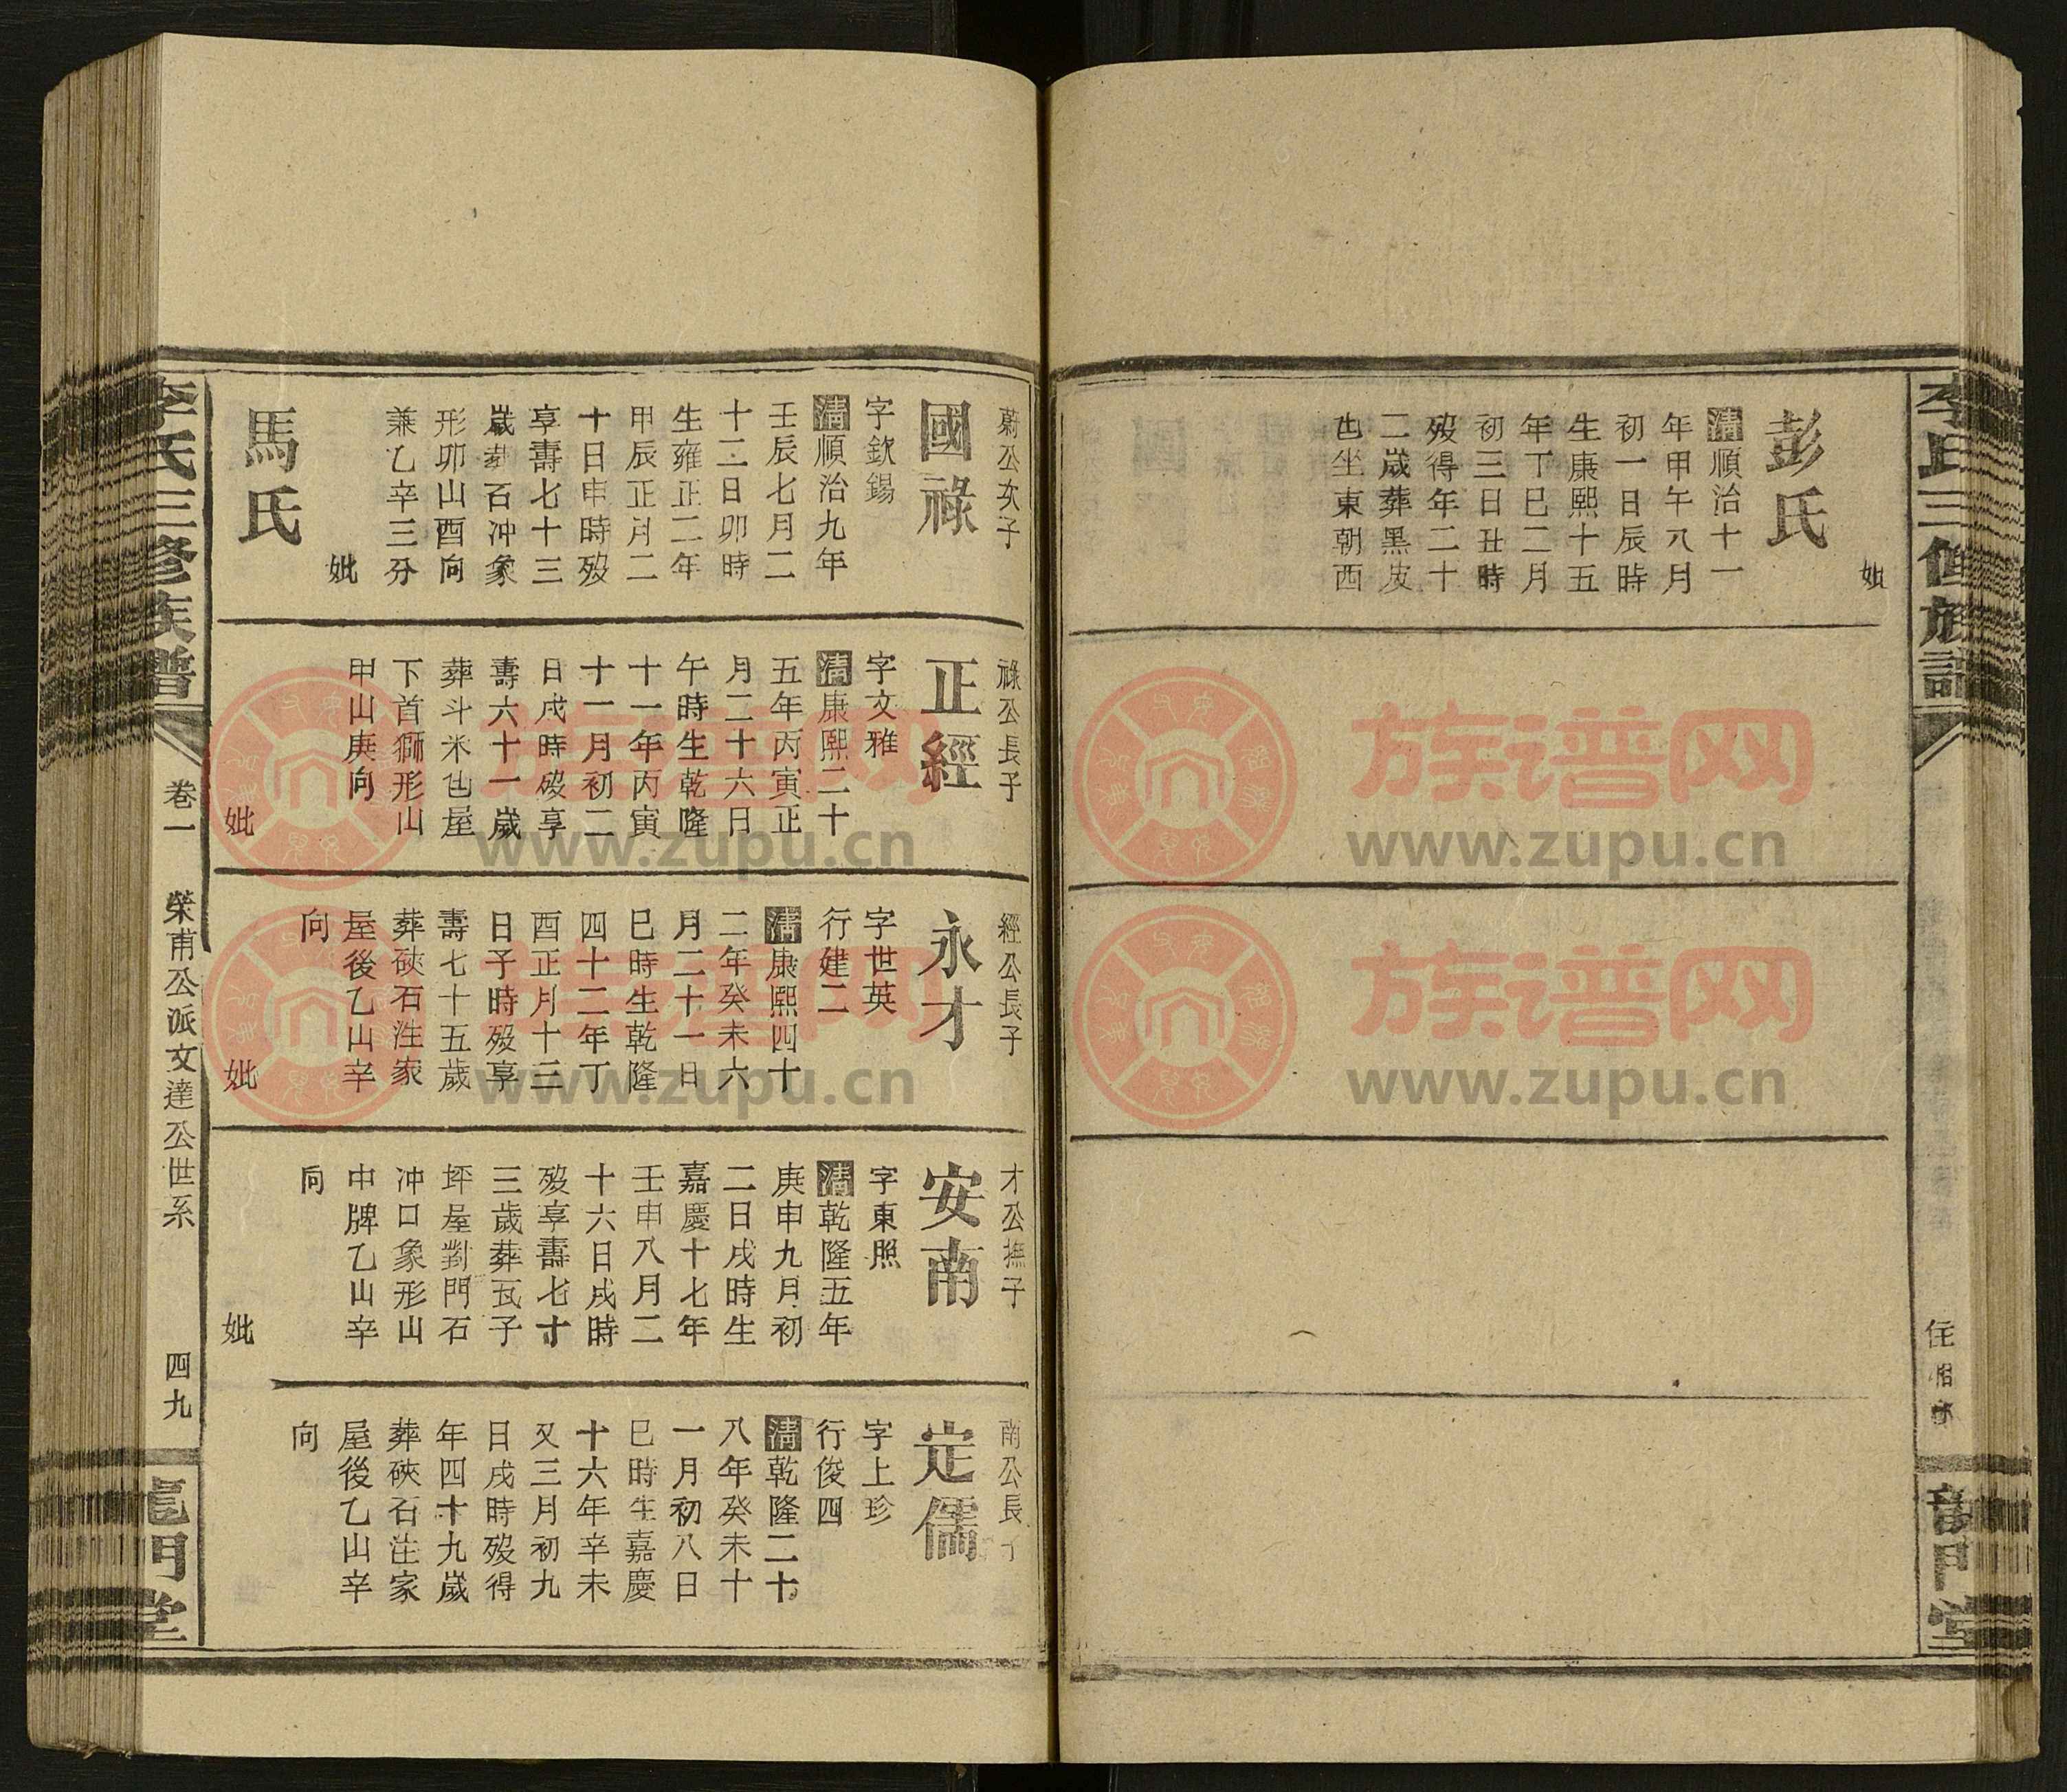 李氏三修族譜
龍門堂
妣
彭氏
清順治十一
年甲午八月
初一日辰時
生康熙十五
年丁巳二月
初三日丑時
殁得年二十
二歲葬黑皮
屯坐東朝西
蔚公次子
國祿
字欽錫
清順治九年
壬辰七月二
十二日卯時
生雍正二年
甲辰正月二
十日申時殁
享壽七十三
歲葬石冲象
形卯山酉向
兼乙辛三分
妣
馬氏
祿公長子
正經
字文雅
清康熙二十
五年丙寅正
月二十六日
午時生乾隆
十一年丙寅
十一月初二
日戌時殁享
壽六十一歲
葬斗米屯屋
下首獅形山
甲山庚向
妣
經公長子
永才
字世英
行建二
清康熙四十
二年癸未六
月二十一日
巳時生乾隆
四十二年丁
酉正月十三
日子時殁享
壽七十五歲
葬硤石注家
屋後乙山辛
向
妣
才公撫子
安南
字東照
清乾隆五年
庚申九月初
二日戌時生
嘉慶十七年
壬申八月二
十六日戌時
殁享壽七十
三歲葬瓦子
坪屋對門石
冲口象形山
中牌乙山辛
向
妣
南公長子
定儒
字上珍
行俊四
清乾隆二十
八年癸未十
一月初八日
巳時生嘉慶
十六年辛未
又三月初九
日戌時殁得
年四十九歲
葬硤石注家
屋後乙山辛
向
李氏三修族譜
卷一
榮甫公派文達公世系
四九
龍門堂
族谱网
www.zupu.cn
族谱网
www.zupu.cn
族谱网
www.zupu.cn
族谱网
www.zupu.cn